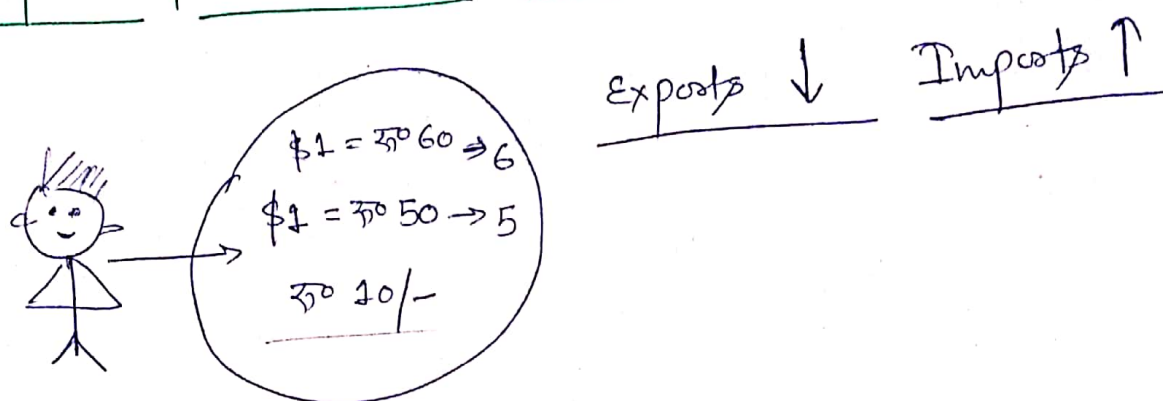 Exports ↓ Imports ↑
$1 = रु० 60 → 6
$1 = रु० 50 → 5
रु० 10/-